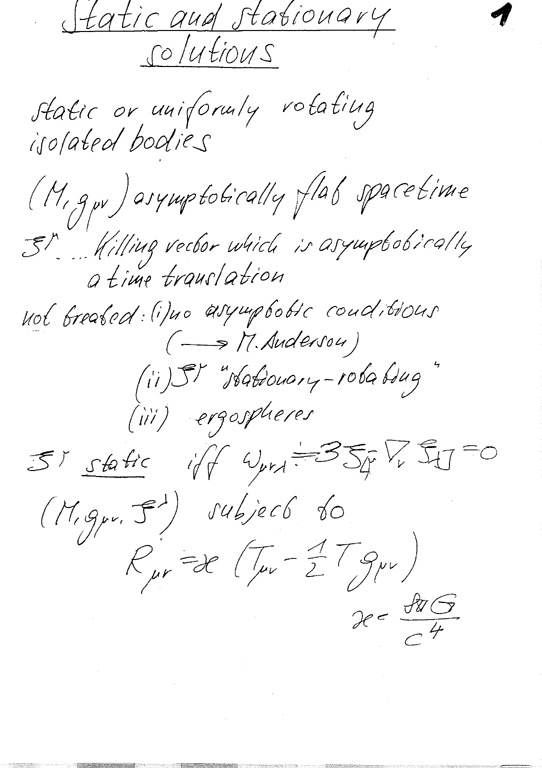 Static and stationary
1
solutions
static or uniformly rotating
isolated bodies
(M, g_μν) asymptotically flat spacetime
ξ^μ .... Killing vector which is asymptotically
a time translation
not treated: (i) no asymptotic conditions
(⟶ M. Anderson)
(ii) ξ^μ "stationary-rotating"
(iii) ergospheres
ξ^μ static iff ω_μνλ := 3 ξ_[μ ∇_ν ξ_λ] = 0
(M, g_μν, ξ^λ) subject to
R_μν = ϰ (T_μν - 1/2 T g_μν)
ϰ = 8πG/c^4